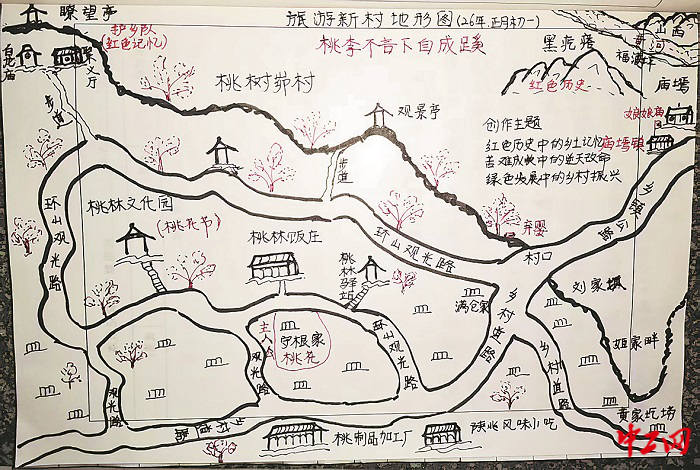 瞭望亭
护乡队
(红色记忆)
旅游新村地形图(26年正月初一)
桃李不言下自成蹊
山西
黄河
白龙庙
聚义厅
步道
桃树峁村
观景亭
黑疙瘩
红色历史
庙塌
娘娘庙
庙塌镇
创作主题
红色历史中的乡土记忆
苦难成长中的逆天改命
绿色发展中的乡村振兴
步道
乡镇公路
环山观光路
桃林文化园
(桃花节)
桃林饭庄
桃林驿站
环山观光路
弃婴
村口
满仓家
刘家塬
姬家畔
主人公
守根家
桃花
环山观光路
观光路
观光路
乡村道路
乡村道路
黄家圪塔
桃制品加工厂
陕北风味小吃
中工网